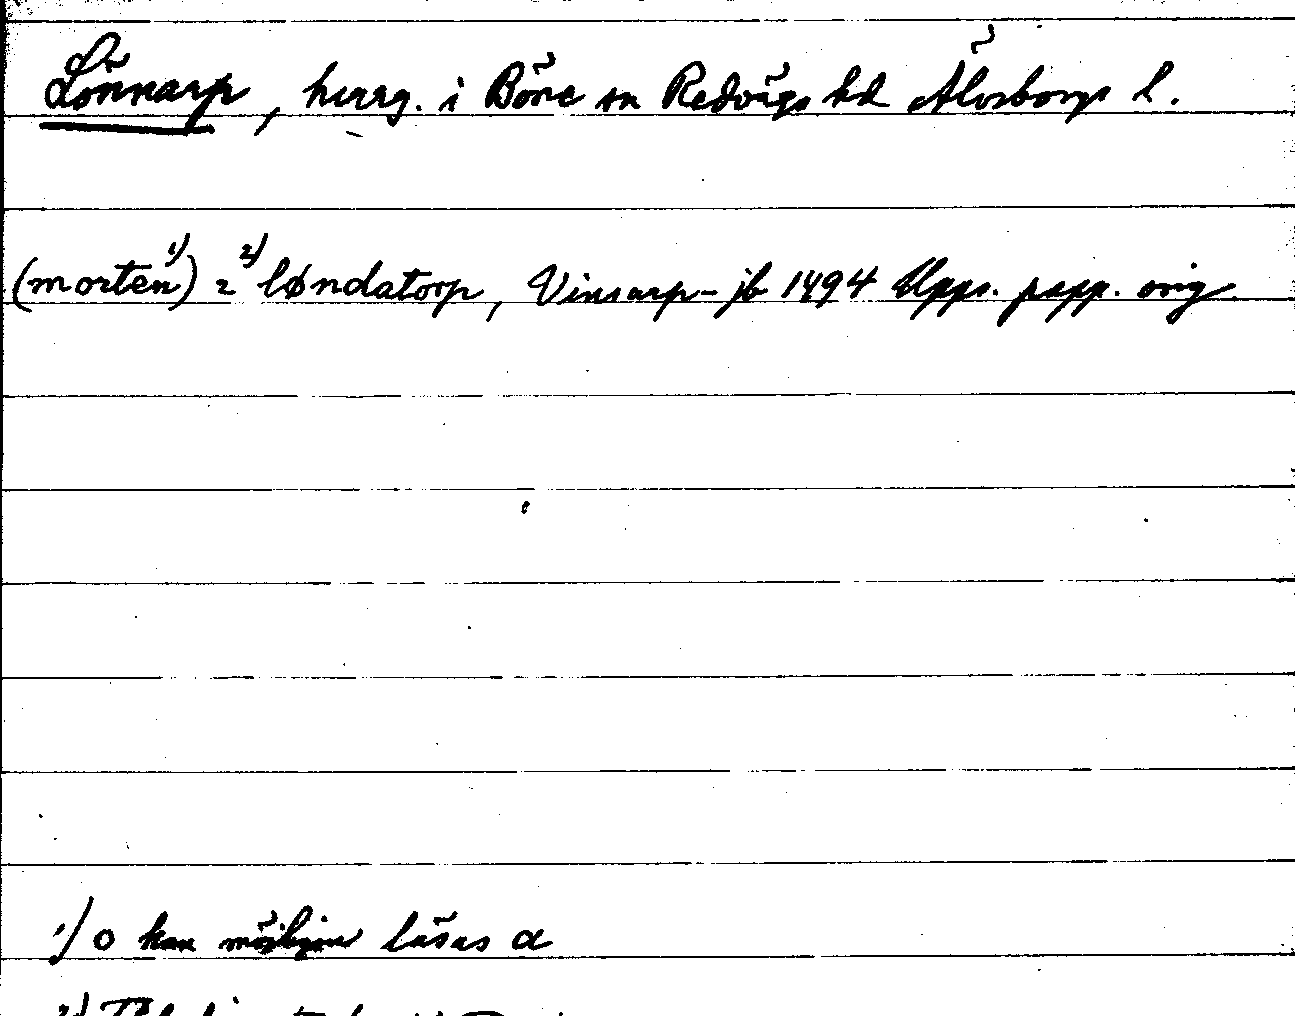 Lönnarp, herrg. i Böne sn Redvägs hd Älvsborgs l.
(morten¹⁾) 2 ²⁾ løndatorp, Vinsarp-jb 1494 Upps. papp. orig
1) o kan möjligen läsas a
2)